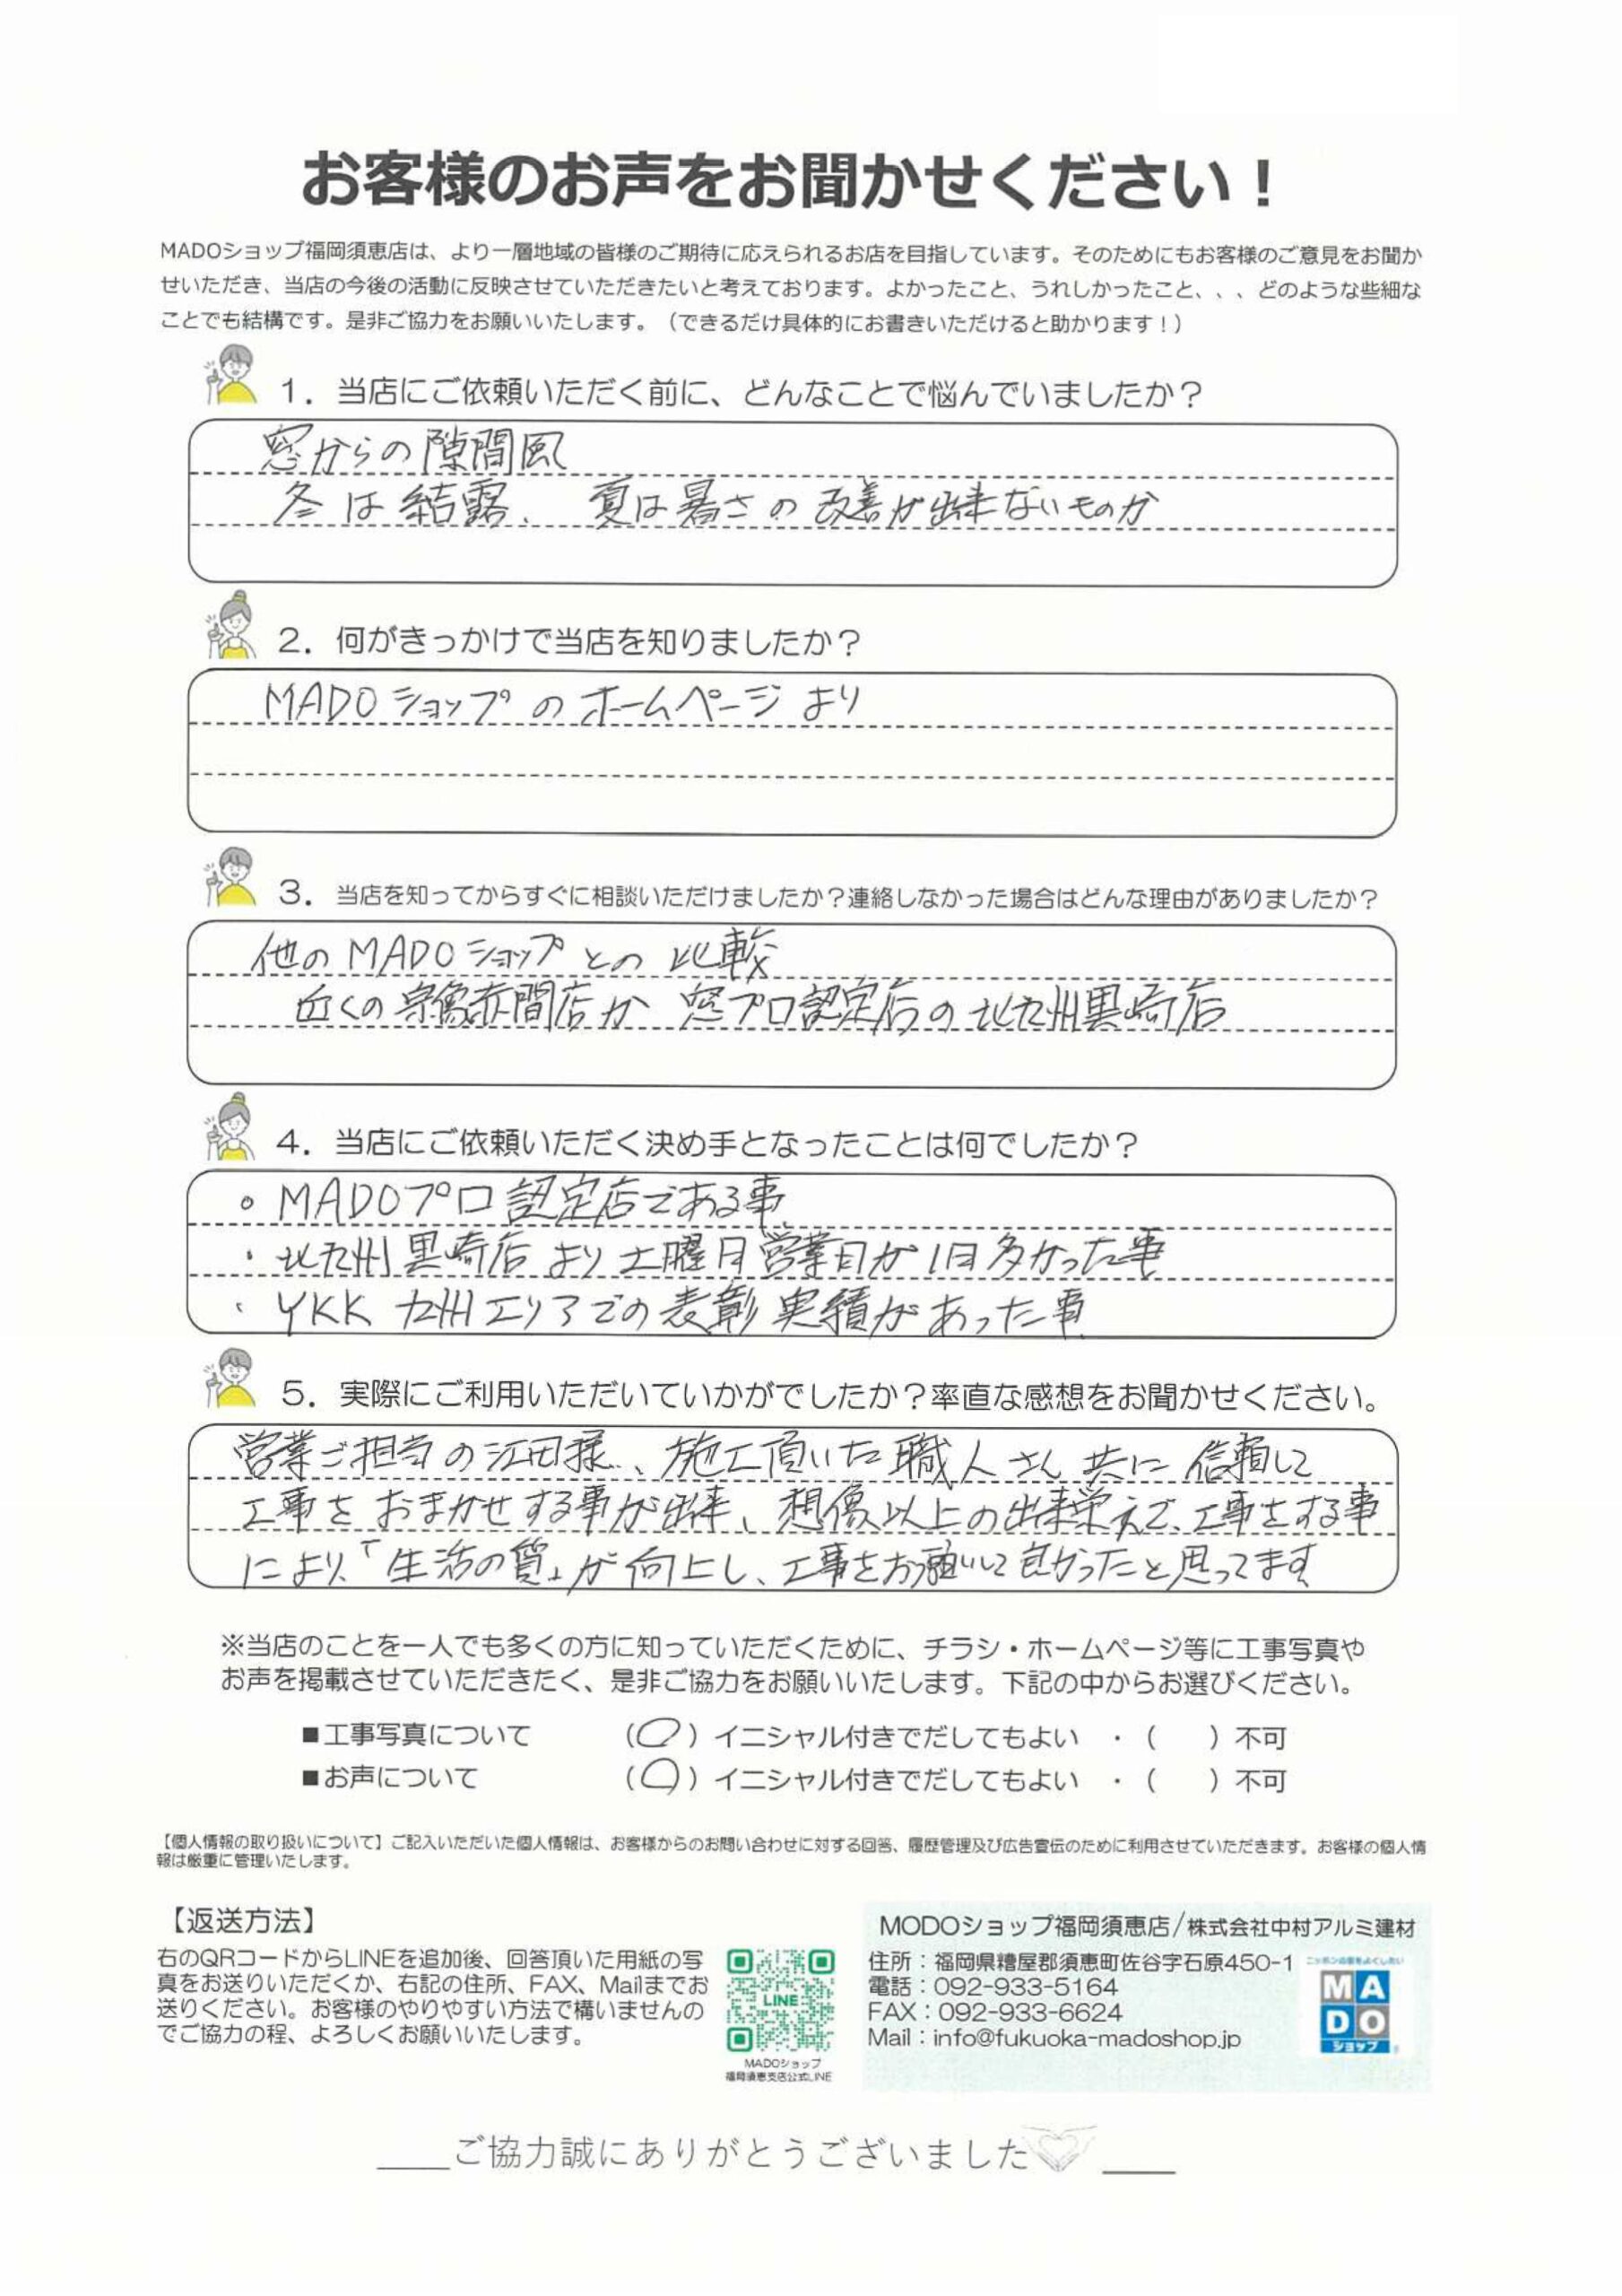 お客様のお声をお聞かせください！
MADOショップ福岡須恵店は、より一層地域の皆様のご期待に応えられるお店を目指しています。そのためにもお客様のご意見をお聞か
せいただき、当店の今後の活動に反映させていただきたいと考えております。よかったこと、うれしかったこと、、、どのような些細な
ことでも結構です。是非ご協力をお願いいたします。（できるだけ具体的にお書きいただけると助かります！）
1．当店にご依頼いただく前に、どんなことで悩んでいましたか？
窓からの隙間風
冬は結露、夏は暑さの改善が出来ないものか
2．何がきっかけで当店を知りましたか？
MADOショップのホームページより
3．当店を知ってからすぐに相談いただけましたか？連絡しなかった場合はどんな理由がありましたか？
他のMADOショップとの比較
近くの宗像赤間店か窓プロ認定店の北九州黒崎店
4．当店にご依頼いただく決め手となったことは何でしたか？
。MADOプロ認定店である事
・北九州黒崎店より土曜日営業日が1日多かった事
・YKK九州エリアでの表彰実績があった事
5．実際にご利用いただいていかがでしたか？率直な感想をお聞かせください。
営業ご担当の江田様、施工頂いた職人さん共に信頼して
工事をおまかせする事が出来、想像以上の出来栄えで、工事をする事
により、「生活の質」が向上し、工事をお願いして良かったと思ってます
※当店のことを一人でも多くの方に知っていただくために、チラシ・ホームページ等に工事写真や
お声を掲載させていただきたく、是非ご協力をお願いいたします。下記の中からお選びください。
■工事写真について （○）イニシャル付きでだしてもよい ・（ ）不可
■お声について （○）イニシャル付きでだしてもよい ・（ ）不可
【個人情報の取り扱いについて】ご記入いただいた個人情報は、お客様からのお問い合わせに対する回答、履歴管理及び広告宣伝のために利用させていただきます。お客様の個人情
報は厳重に管理いたします。
【返送方法】
右のQRコードからLINEを追加後、回答頂いた用紙の写
真をお送りいただくか、右記の住所、FAX、Mailまでお
送りください。お客様のやりやすい方法で構いませんの
でご協力の程、よろしくお願いいたします。
LINE
MADOショップ
福岡須恵支店公式LINE
MODOショップ福岡須恵店/株式会社中村アルミ建材
住所：福岡県糟屋郡須恵町佐谷字石原450-1
電話：092-933-5164
FAX：092-933-6624
Mail：info@fukuoka-madoshop.jp
ニッポンの窓をよくしたい
MA
DO
ショップ
ご協力誠にありがとうございました